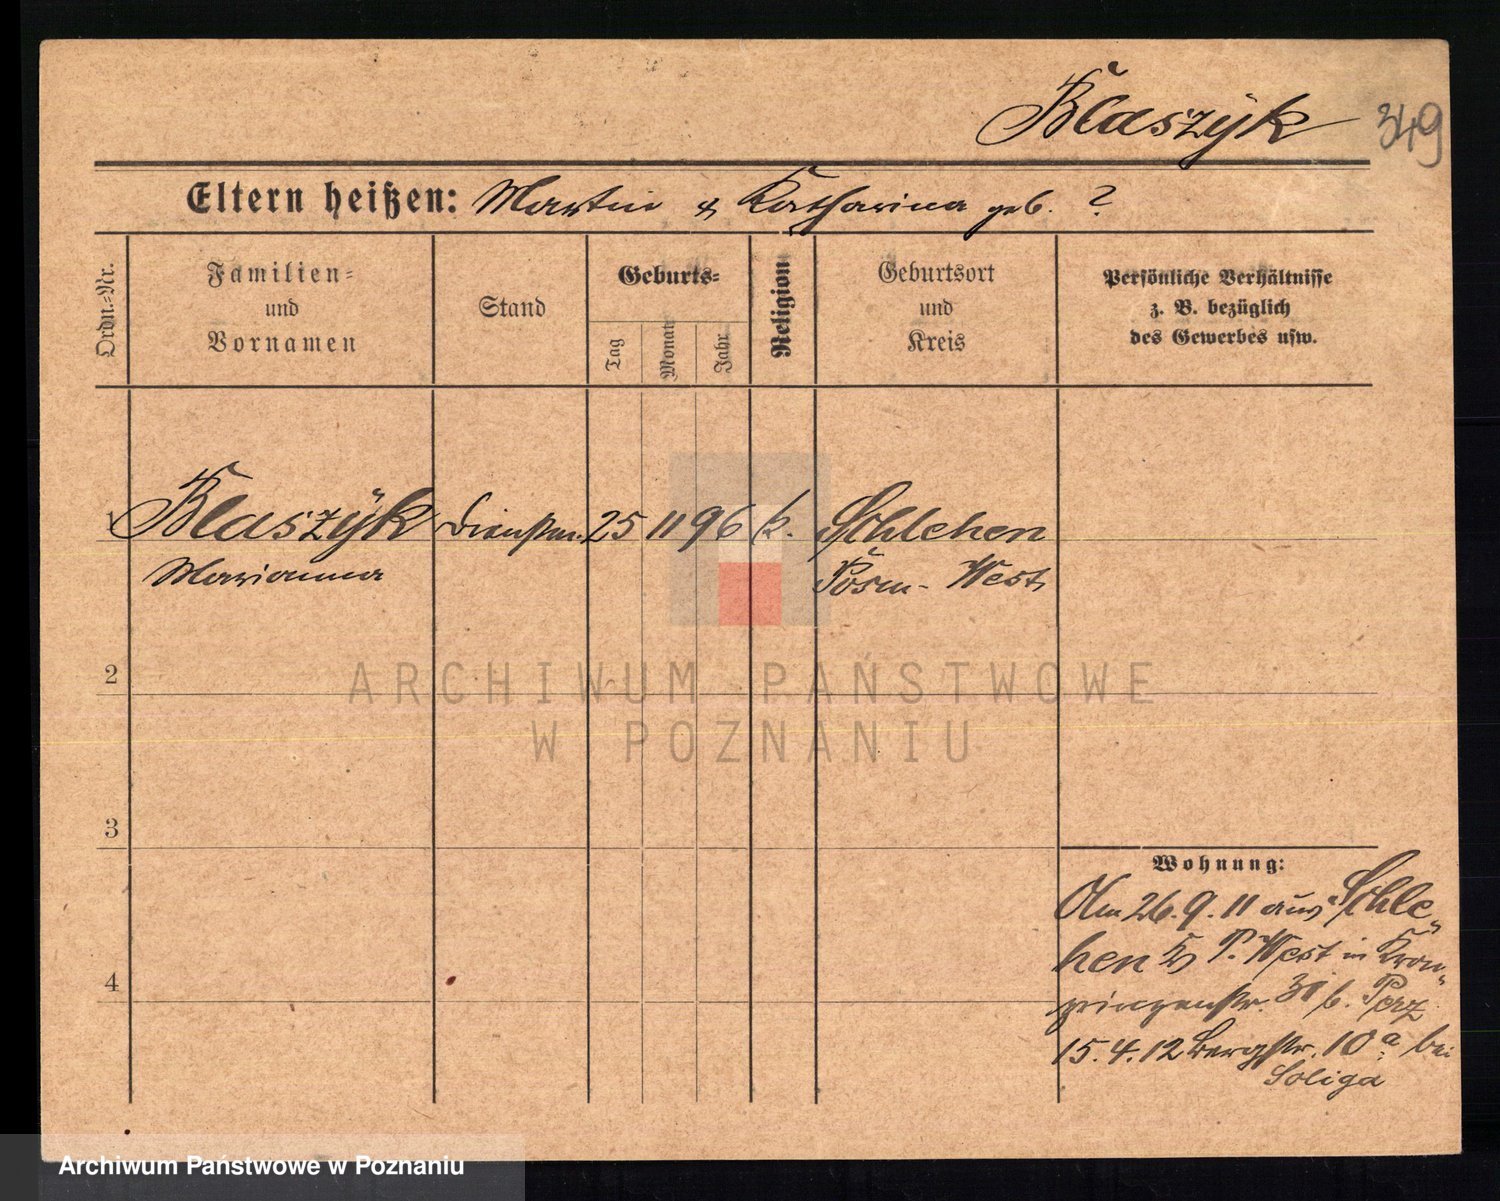 Blaszÿk
349
Eltern heißen: Martin & Katharina geb. ?
Ordn.-Nr.
Familien-
und
Vornamen
Stand
Geburts-
Tag
Monat
Jahr
Religion
Geburtsort
und
Kreis
Persönliche Verhältnisse
z. B. bezüglich
des Gewerbes usw.
1 Blaszÿk Dienstm. 25 11 96 k. Schlehen
Marianna Posen-West
2
3
4
Wohnung:
Am 26.9.11 aus Schle-
hen P. West in Kron-
prinzenstr. 31 b.
15.4.12 Bergstr. 10a bei
Soliga
ARCHIWUM PAŃSTWOWE
W POZNANIU
Archiwum Państwowe w Poznaniu